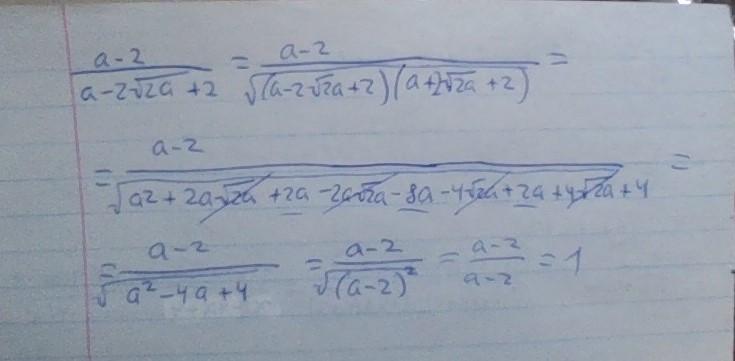 (a-2)/(a-2√2a+2) = (a-2)/√((a-2√2a+2)(a+2√2a+2)) =
= (a-2)/√(a2+2a√2a+2a-2a√2a-8a-4√2a+2a+4√2a+4) =
= (a-2)/√(a²-4a+4) = (a-2)/√((a-2)²) = (a-2)/(a-2) = 1